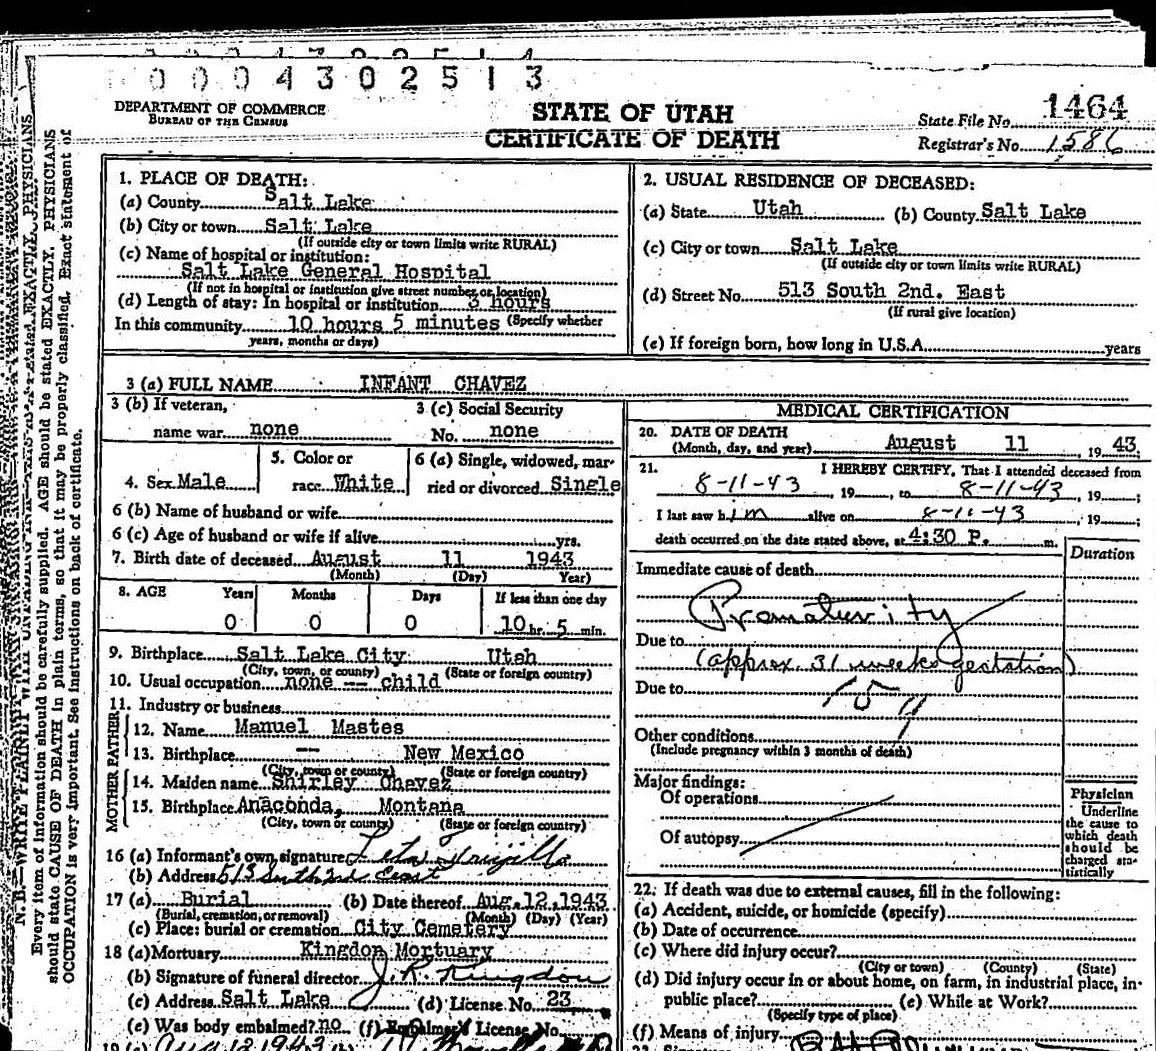 0004302513
DEPARTMENT OF COMMERCE
BUREAU OF THE CENSUS
STATE OF UTAH
CERTIFICATE OF DEATH
State File No. 1464
Registrar's No. 1586
N. B.—WRITE PLAINLY WITH UNFADING INK
Every item of information should be carefully supplied. AGE should be stated EXACTLY. PHYSICIANS
should state CAUSE OF DEATH in plain terms, so that it may be properly classified. Exact statement of
OCCUPATION is very important. See instructions on back of certificate.
1. PLACE OF DEATH:
(a) County Salt Lake
(b) City or town Salt Lake
(If outside city or town limits write RURAL)
(c) Name of hospital or institution:
Salt Lake General Hospital
(If not in hospital or institution give street number or location)
(d) Length of stay: In hospital or institution hours
In this community 10 hours 5 minutes (Specify whether
years, months or days)
2. USUAL RESIDENCE OF DECEASED:
(a) State Utah (b) County Salt Lake
(c) City or town Salt Lake
(If outside city or town limits write RURAL)
(d) Street No. 513 South 2nd. East
(If rural give location)
(e) If foreign born, how long in U.S.A. years
3 (a) FULL NAME INFANT CHAVEZ
3 (b) If veteran, 3 (c) Social Security
name war none No. none
4. Sex Male 5. Color or race White 6 (a) Single, widowed, married or divorced Single
6 (b) Name of husband or wife
6 (c) Age of husband or wife if alive yrs.
7. Birth date of deceased August 11 1943
(Month) (Day) Year)
8. AGE Years Months Days If less than one day
0 0 0 10 hr. 5 min.
9. Birthplace Salt Lake City Utah
(City, town, or county) (State or foreign country)
10. Usual occupation none -- child
11. Industry or business
FATHER
12. Name Manuel Mastes
13. Birthplace -- New Mexico
(City, town or county) (State or foreign country)
MOTHER
14. Maiden name Shirley Chavez
15. Birthplace Anaconda, Montana
(City, town or county) (State or foreign country)
16 (a) Informant's own signature Trujillo
(b) Address 513 South 2nd East
17 (a) Burial (b) Date thereof Aug. 12, 1943
(Burial, cremation, or removal) (Month) (Day) (Year)
(c) Place: burial or cremation City Cemetery
18 (a) Mortuary Kingdon Mortuary
(b) Signature of funeral director J. R. Kingdon
(c) Address Salt Lake (d) License No. 23
(e) Was body embalmed? no (f) Embalmer's License No.
19 (a) Aug 12 1943 (b)
MEDICAL CERTIFICATION
20. DATE OF DEATH
(Month, day, and year) August 11, 1943
21. I HEREBY CERTIFY, That I attended deceased from
8-11-43, 19 , to 8-11-43, 19 ;
I last saw him alive on 8-11-43, 19 ;
death occurred on the date stated above, at 4:30 P. m.
Duration
Immediate cause of death
Prematurity
Due to
(approx. 31 weeks gestation)
Due to
Other conditions
(Include pregnancy within 3 months of death)
Major findings:
Of operations
Of autopsy
Physician
Underline
the cause to
which death
should be
charged sta-
tistically
22. If death was due to external causes, fill in the following:
(a) Accident, suicide, or homicide (specify)
(b) Date of occurrence
(c) Where did injury occur?
(City or town) (County) (State)
(d) Did injury occur in or about home, on farm, in industrial place, in
public place? (e) While at Work?
(Specify type of place)
(f) Means of injury